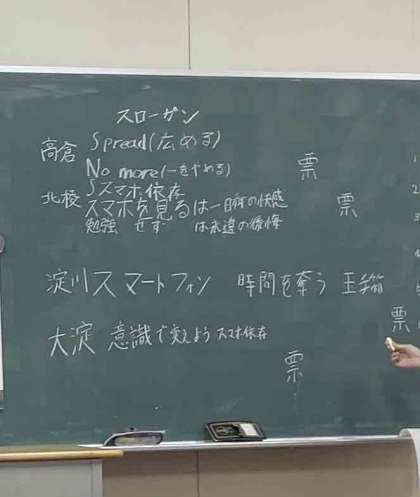 スローガン
高倉 Spread(広める)
No more(~をやめる)
Sスマホ依存 票
北稜 スマホを見るは一時の快感 票
勉強せずは永遠の後悔
淀川 スマートフォン 時間を奪う 玉手箱 票
大淀 意識で変えよう スマホ依存
票
1
2
3
4
5